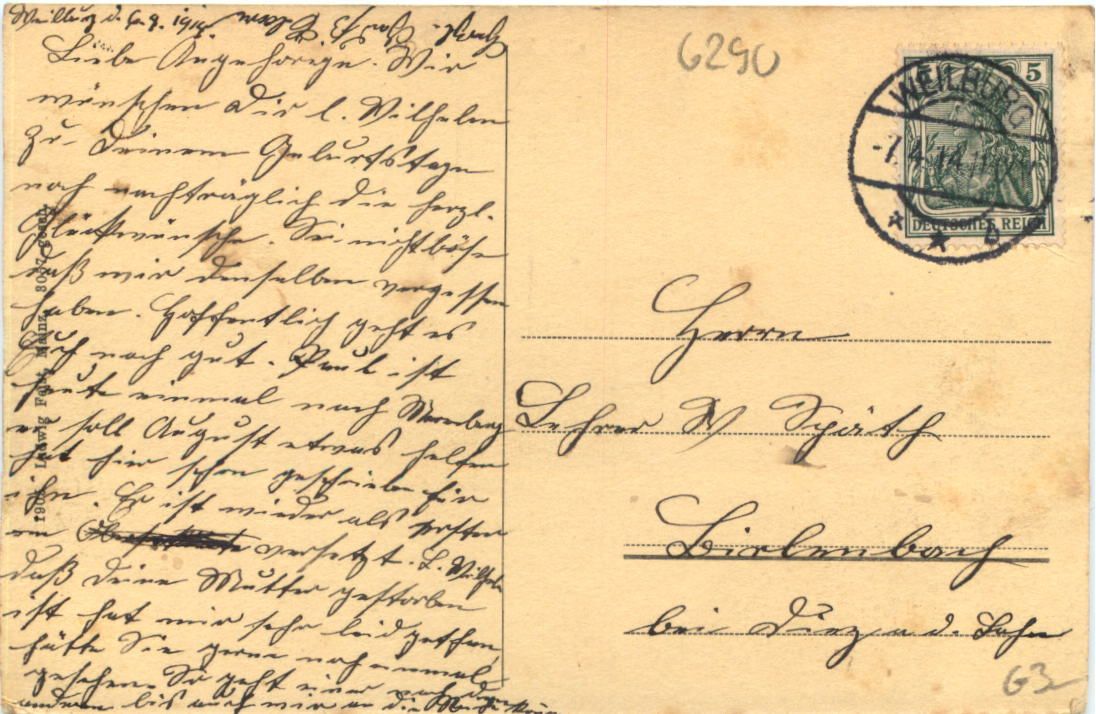 Weilburg d. 6. 4. 1914
Liebe Angehörige. Wir
wünschen Dir l. Wilhelm
zu Deinem Geburtstage
noch nachträglich die herzl.
Glückwünsche. Sei nicht böse
daß wir denselben vergessen
haben. Hoffentlich geht es
Euch noch gut. Paul ist
heute einmal nach Merenberg
er soll August etwas helfen
hat hier schon geschrieben für
ihn. Er ist wieder als
am versetzt. L. Wilhelm
daß Deine Mutter gestorben
ist hat mir sehr leid gethan,
hätte Sie gerne noch einmal
gesehen. So geht einer nach dem
anderen bis auch wir an die Reihe
1906 Ludwig Feist, Mainz
6290
5
WEILBURG
-7.4.14
* * b
DEUTSCHES REICH
Herrn
Lehrer W Späth
Bielenbach
bei Diez a. d. Lahn
63